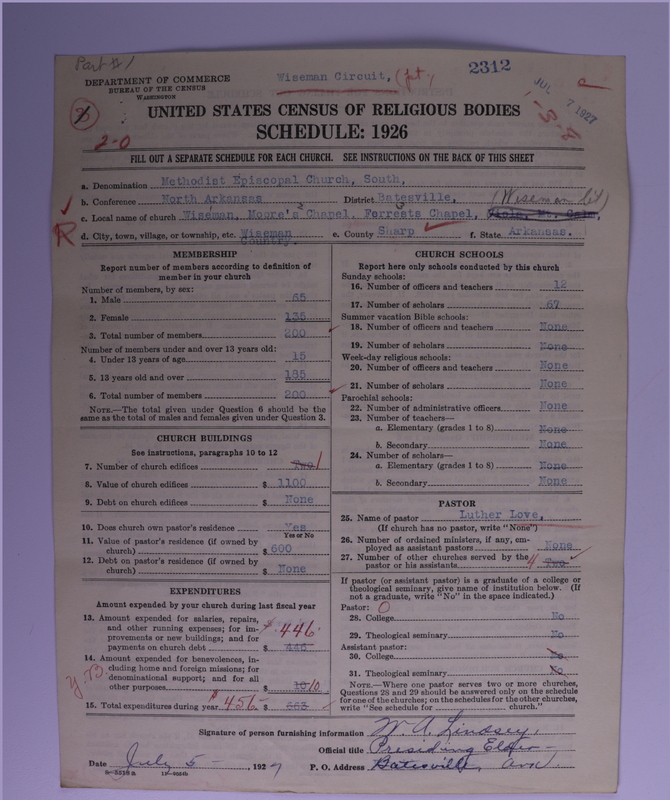 Part #1
DEPARTMENT OF COMMERCE
BUREAU OF THE CENSUS
WASHINGTON
Wiseman Circuit,
2312
JUL 7 1927
2-0
UNITED STATES CENSUS OF RELIGIOUS BODIES
SCHEDULE: 1926
FILL OUT A SEPARATE SCHEDULE FOR EACH CHURCH. SEE INSTRUCTIONS ON THE BACK OF THIS SHEET
a. Denomination Methodist Episcopal Church, South,
b. Conference North Arkansas District Batesville, (Wiseman Ct)
c. Local name of church Wiseman, Moore's Chapel, Forrests Chapel,
d. City, town, village, or township, etc. Wiseman Country. e. County Sharp f. State Arkansas.
MEMBERSHIP
Report number of members according to definition of member in your church
Number of members, by sex:
1. Male 65
2. Female 135
3. Total number of members 200
Number of members under and over 13 years old:
4. Under 13 years of age 15
5. 13 years old and over 185
6. Total number of members 200
NOTE.—The total given under Question 6 should be the same as the total of males and females given under Question 3.
CHURCH BUILDINGS
See instructions, paragraphs 10 to 12
7. Number of church edifices Two 1
8. Value of church edifices $ 1100
9. Debt on church edifices $ None
10. Does church own pastor's residence Yes
Yes or No
11. Value of pastor's residence (if owned by church) $ 600
12. Debt on pastor's residence (if owned by church) $ None
EXPENDITURES
Amount expended by your church during last fiscal year
13. Amount expended for salaries, repairs, and other running expenses; for improvements or new buildings; and for payments on church debt $ 446
14. Amount expended for benevolences, including home and foreign missions; for denominational support; and for all other purposes $ 10
15. Total expenditures during year $ 456
CHURCH SCHOOLS
Report here only schools conducted by this church
Sunday schools:
16. Number of officers and teachers 12
17. Number of scholars 67
Summer vacation Bible schools:
18. Number of officers and teachers None
19. Number of scholars None
Week-day religious schools:
20. Number of officers and teachers None
21. Number of scholars None
Parochial schools:
22. Number of administrative officers None
23. Number of teachers—
a. Elementary (grades 1 to 8) None
b. Secondary None
24. Number of scholars—
a. Elementary (grades 1 to 8) None
b. Secondary None
PASTOR
25. Name of pastor Luther Love,
(If church has no pastor, write "None")
26. Number of ordained ministers, if any, employed as assistant pastors None
27. Number of other churches served by the pastor or his assistants 4 Two
If pastor (or assistant pastor) is a graduate of a college or theological seminary, give name of institution below. (If not a graduate, write "No" in the space indicated.)
Pastor: 0
28. College No
29. Theological seminary No
Assistant pastor:
30. College No
31. Theological seminary No
NOTE.—Where one pastor serves two or more churches, Questions 28 and 29 should be answered only on the schedule for one of the churches; on the schedules for the other churches, write "See schedule for church."
Signature of person furnishing information W. A. Lindsey,
Official title Presiding Elder
Date July 5 1927 P. O. Address Batesville, Ark